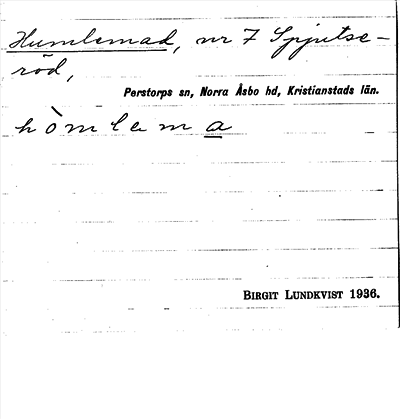 Humlemad, nr 7 Spjutse-
röd,
Perstorps sn, Norra Åsbo hd, Kristianstads län.
hòmlema
BIRGIT LUNDKVIST 1936.